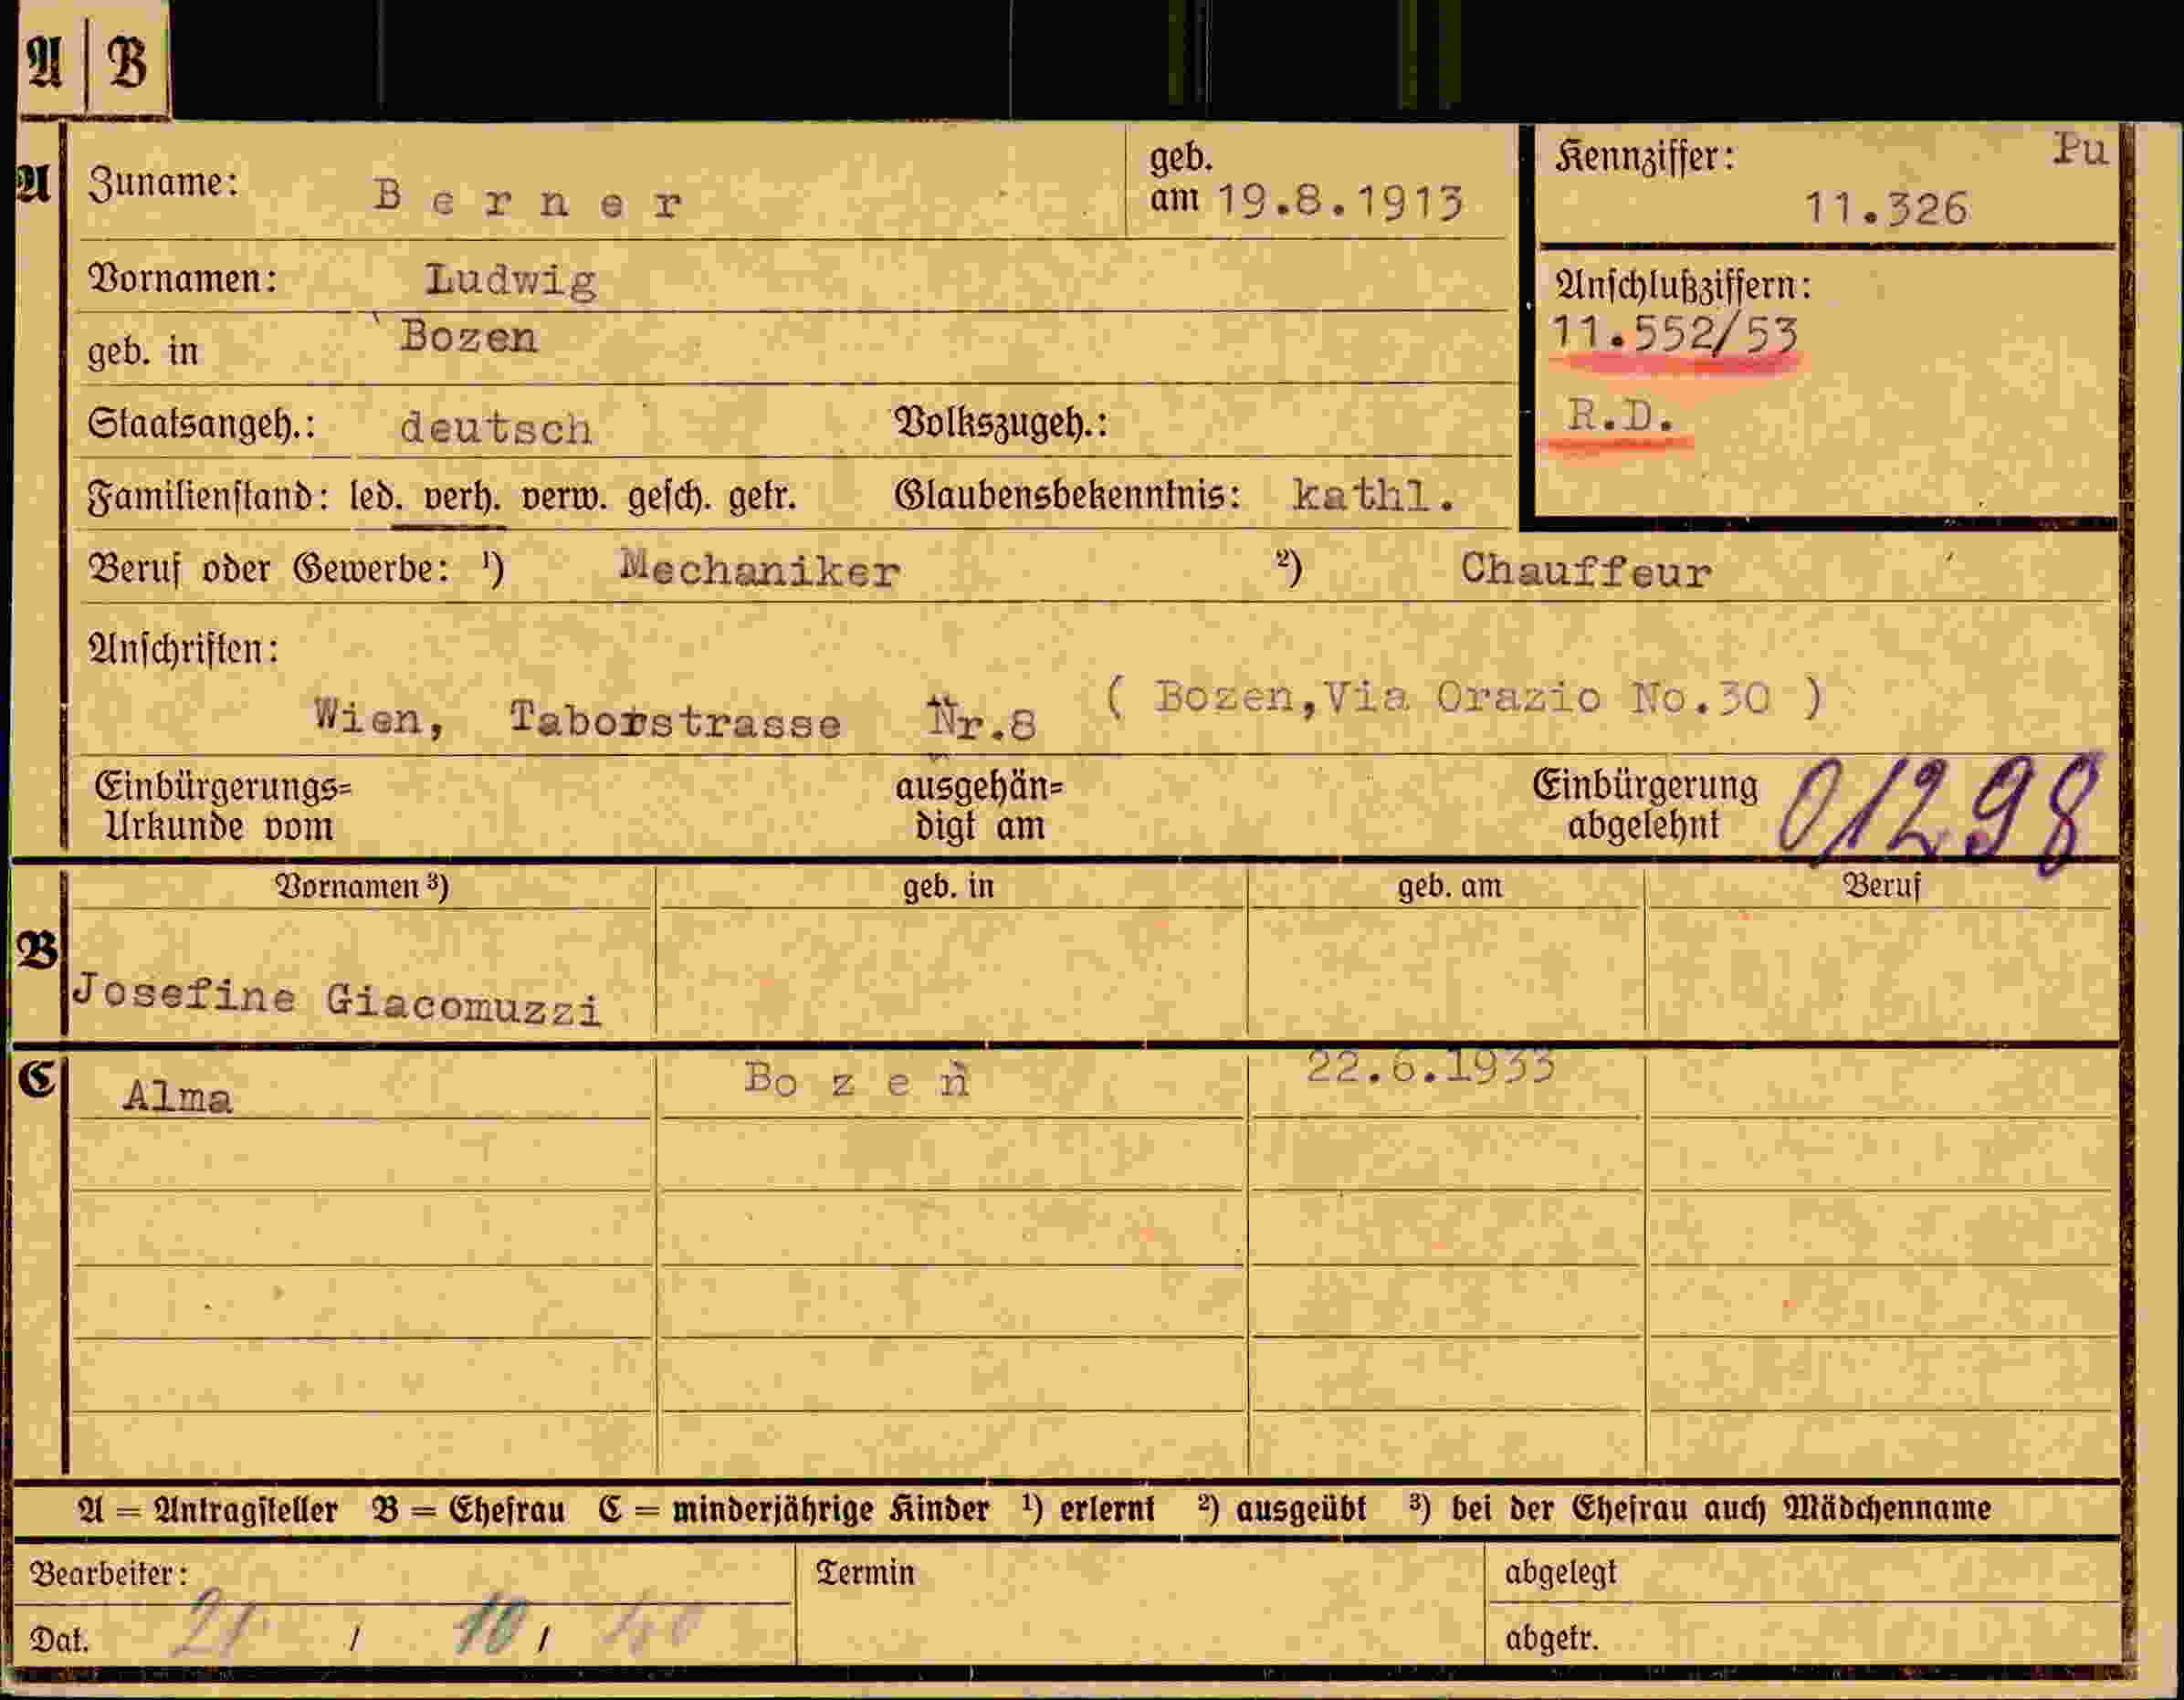 A | B
A
Zuname: Berner
geb. am 19.8.1913
Kennziffer: Pu
11.326
Vornamen: Ludwig
Anschlußziffern:
11.552/53
R.D.
geb. in Bozen
Staatsangeh.: deutsch Volkszugeh.:
Familienstand: led. verh. verw. gesch. getr. Glaubensbekenntnis: kathl.
Beruf oder Gewerbe: ¹) Mechaniker ²) Chauffeur
Anschriften:
Wien, Taborstrasse Nr.8 ( Bozen,Via Orazio No.30 )
Einbürgerungs=
Urkunde vom
ausgehän=
digt am
Einbürgerung
abgelehnt
01298
Vornamen ³) geb. in geb. am Beruf
B
Josefine Giacomuzzi
C
Alma Bozen 22.6.1933
A = Antragsteller B = Ehefrau C = minderjährige Kinder ¹) erlernt ²) ausgeübt ³) bei der Ehefrau auch Mädchenname
Bearbeiter: Termin abgelegt
Dat. / 10 / 40 abgetr.